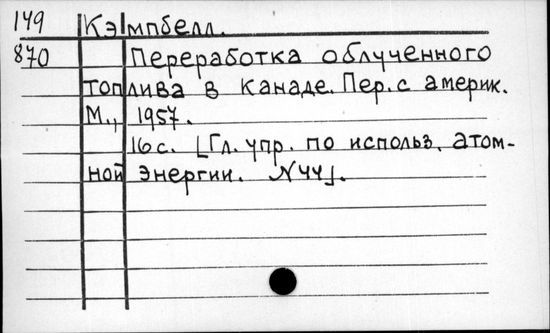 149 Кэмпбелл.
870 Переработка облученного
топлива в Канаде. Пер. с америк.
М., 1957.
16 с. [Гл. упр. по использ. атом-
ной энергии. N44].